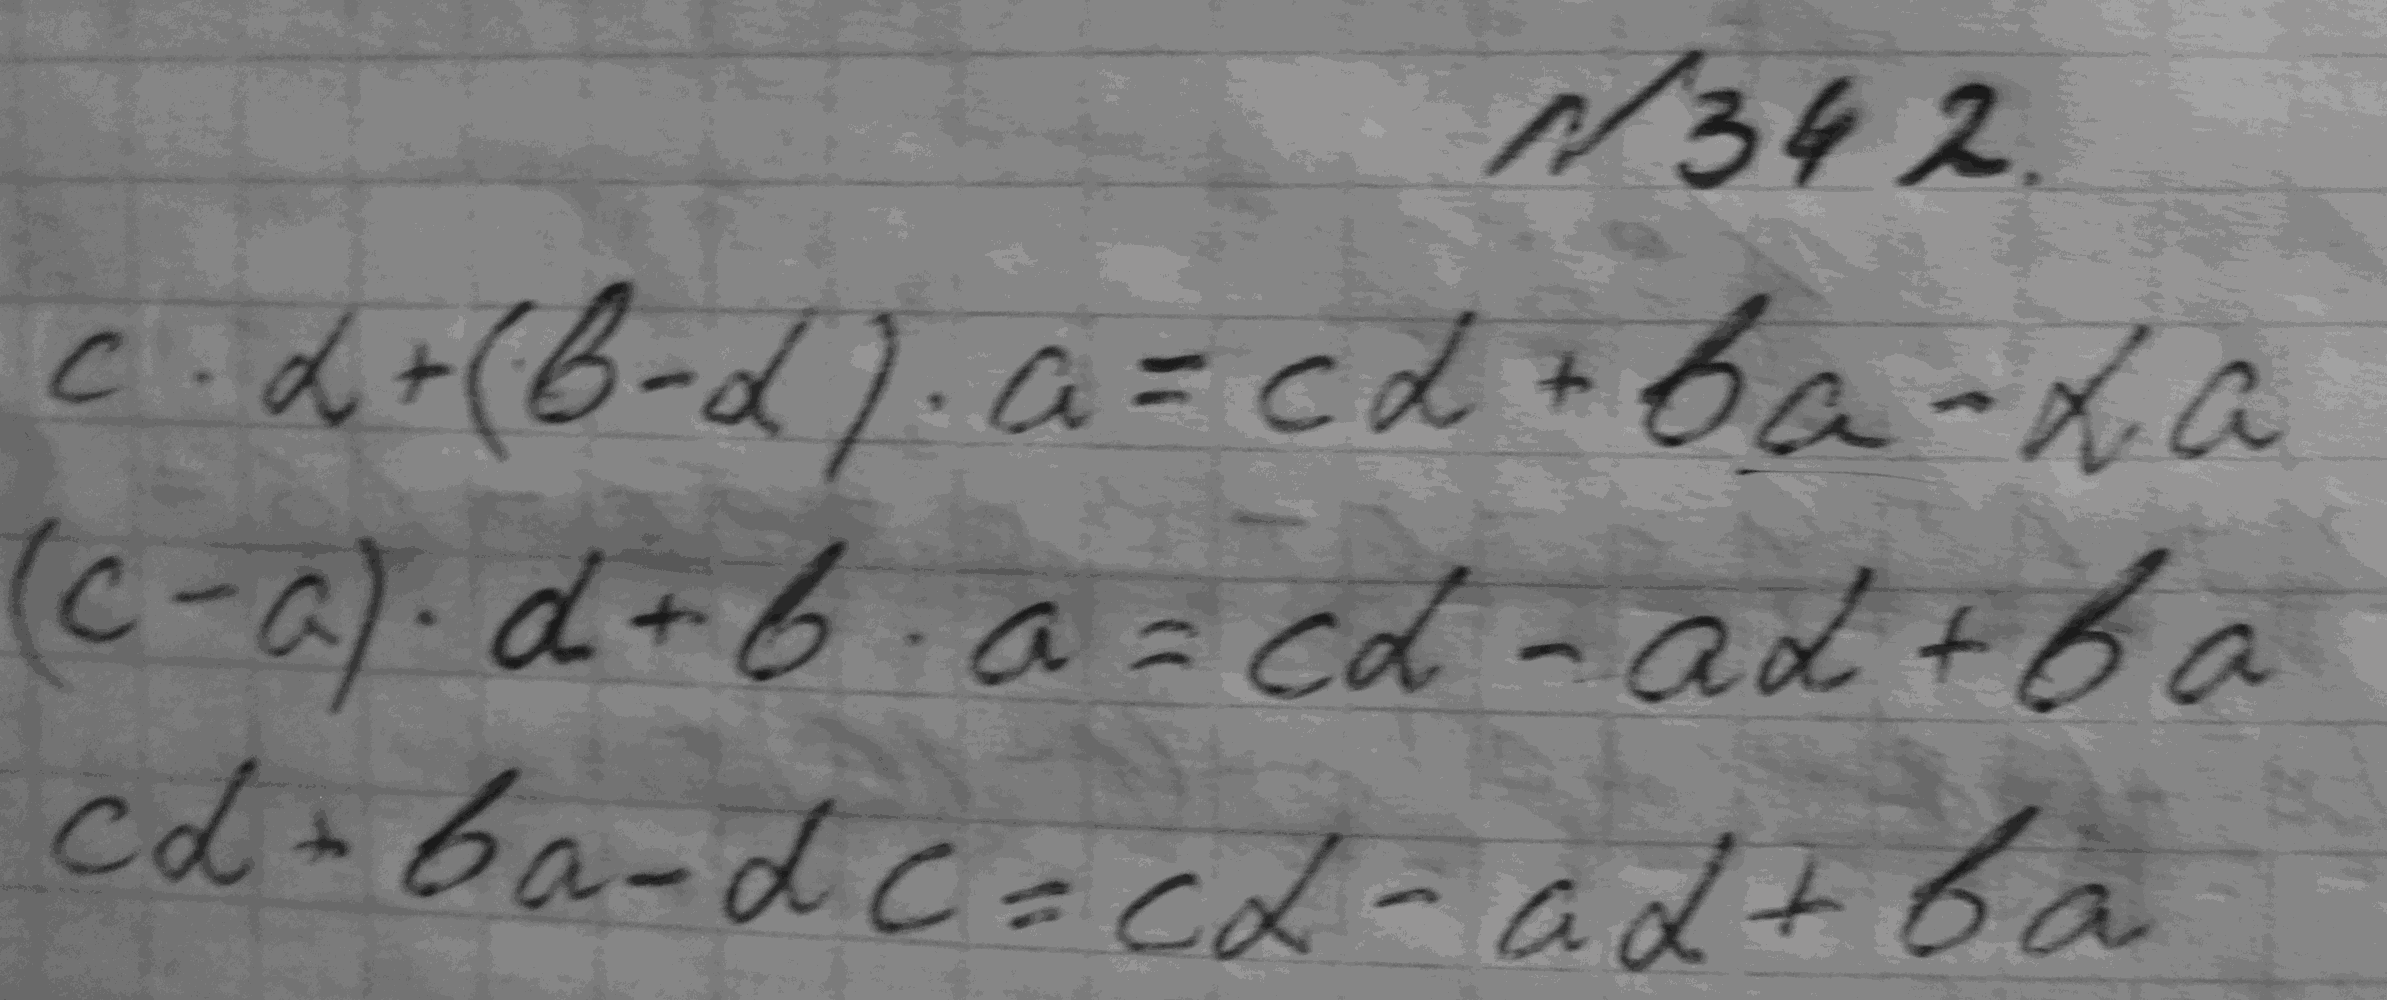 № 342.
c · d + (b - d) · a = cd + ba - da
(c - a) · d + b · a = cd - ad + ba
cd + ba - dc = cd - ad + ba